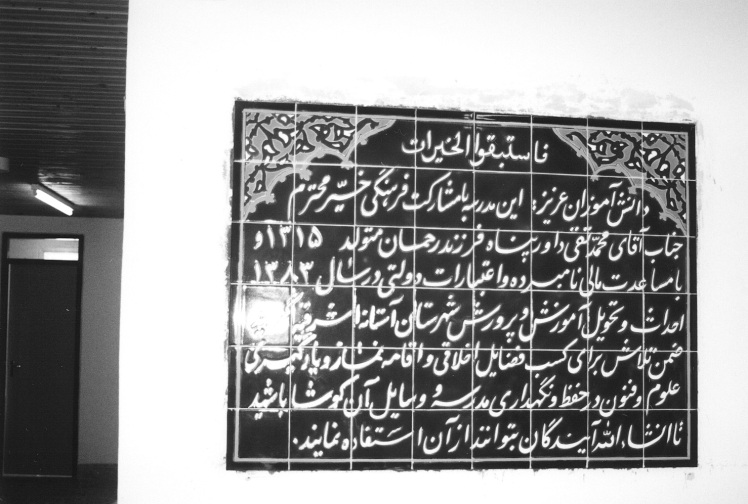 فاستبقوا الخیرات
دانش آموزان عزیز: این مدرسه با مشارکت فرهنگی خیّر محترم
جناب آقای محمدتقی داورپناه فرزند رحمان متولد ۱۳۱۵ و
با مساعدت مالی نامبرده و اعتبارات دولتی در سال ۱۳۸۳
احداث و تحویل آموزش و پرورش شهرستان آستانه اشرفیه
ضمن تلاش برای کسب فضایل اخلاقی و اقامه نماز و یادگیری
علوم و فنون در حفظ و نگهداری مدرسه و وسایل آن کوشا باشید
تا انشاءالله آیندگان بتوانند از آن استفاده نمایند.